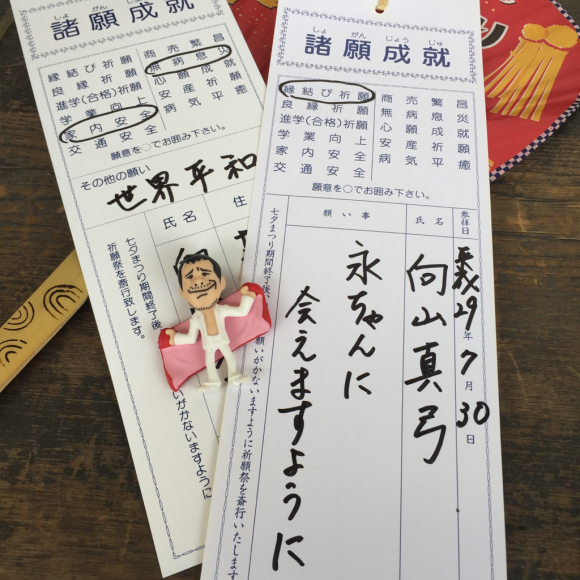 諸願成就
しょ がん じょう じゅ
縁結び祈願
良縁祈願
進学(合格)祈願
学業向上
家内安全
交通安全
商売繁昌
無病息災
心願成就
安産祈願
病気平癒
願意を○でお囲み下さい。
その他の願い
世界平和
氏名
住
七夕まつり期間終了後
祈願祭を斎行致します。
諸願成就
しょ がん じょう じゅ
縁結び祈願
良縁祈願
進学(合格)祈願
学業向上
家内安全
交通安全
商売繁昌
無病息災
心願成就
安産祈願
病気平癒
願意を○でお囲み下さい。
参拝日
平成29年7月30日
氏名
向山真弓
願い事
永ちゃんに
会えますように
七夕まつり期間終了後、
願いがかないますように祈願祭を斎行いたします